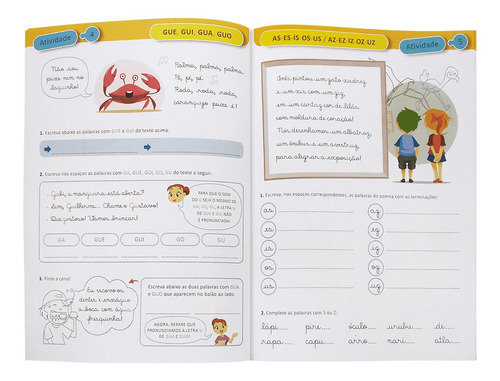 Atividade 4
GUE, GUI, GUA, GUO
Não sou
peixe nem no
laguinho!
Palma, palma, palma,
Pé, pé, pé.
Roda, roda, roda,
caranguejo peixe é!
1. Escreva abaixo as palavras com GUE e GUI do texto acima:
2. Escreva nos espaços as palavras com GA, GUE, GUI, GO, GU do texto a seguir:
– Gabi, a mangueira está aberta?
– Sim, Guilherme... Chame o Gustavo!
– Que gostoso! Vamos brincar!
PARA QUE O SOM
DO G SEJA O MESMO DE
GA, GO, GU, A LETRA U
DE GUE E GUI NÃO
É PRONUNCIADA!
GA GUE GUI GO GU
3. Pinte a cena!
Eu escovo os
dentes e enxáguo
a boca com água
fresquinha!
Escreva abaixo as duas palavras com GUA
e GUO que aparecem no balão ao lado:
AGORA, REPARE QUE
PRONUNCIAMOS A LETRA
U DE GUA E GUO!
AS-ES-IS-OS-US / AZ-EZ-IZ-OZ-UZ
Atividade 5
Inês pintou um gato xadrez
e um xis com um giz,
em um cartaz cor de lilás
com moldura de coração!
Nós desenhamos um albatroz,
um ônibus e um avestruz,
para alegrar a exposição!
1. Escreva, nos espaços correspondentes, as palavras do poema com as terminações:
as az
es ez
is iz
os oz
us uz
2. Complete as palavras com S ou Z:
lápi pire óculo urubu de
rapa capu arro nari atla